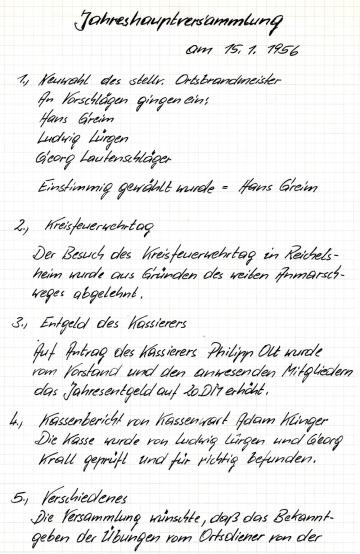 Jahreshauptversammlung
am 15.1.1956
1., Neuwahl des stellv. Ortsbrandmeister
An Vorschlägen gingen ein:
Hans Greim
Ludwig Lürgen
Georg Lautenschläger
Einstimmig gewählt wurde = Hans Greim
2., Kreisfeuerwehrtag
Der Besuch des Kreisfeuerwehrtag in Reichels-
heim wurde aus Gründen des weiten Anmarsch-
weges abgelehnt.
3., Entgeld des Kassierers
Auf Antrag des Kassierers Philipp Olt wurde
vom Vorstand und den anwesenden Mitgliedern
das Jahresentgeld auf 20 DM erhöht.
4., Kassenbericht von Kassenwart Adam Klinger
Die Kasse wurde von Ludwig Lürgen und Georg
Krall geprüft und für richtig befunden.
5., Verschiedenes
Die Versammlung wünschte, daß das Bekannt-
geben der Übungen vom Ortsdiener von der